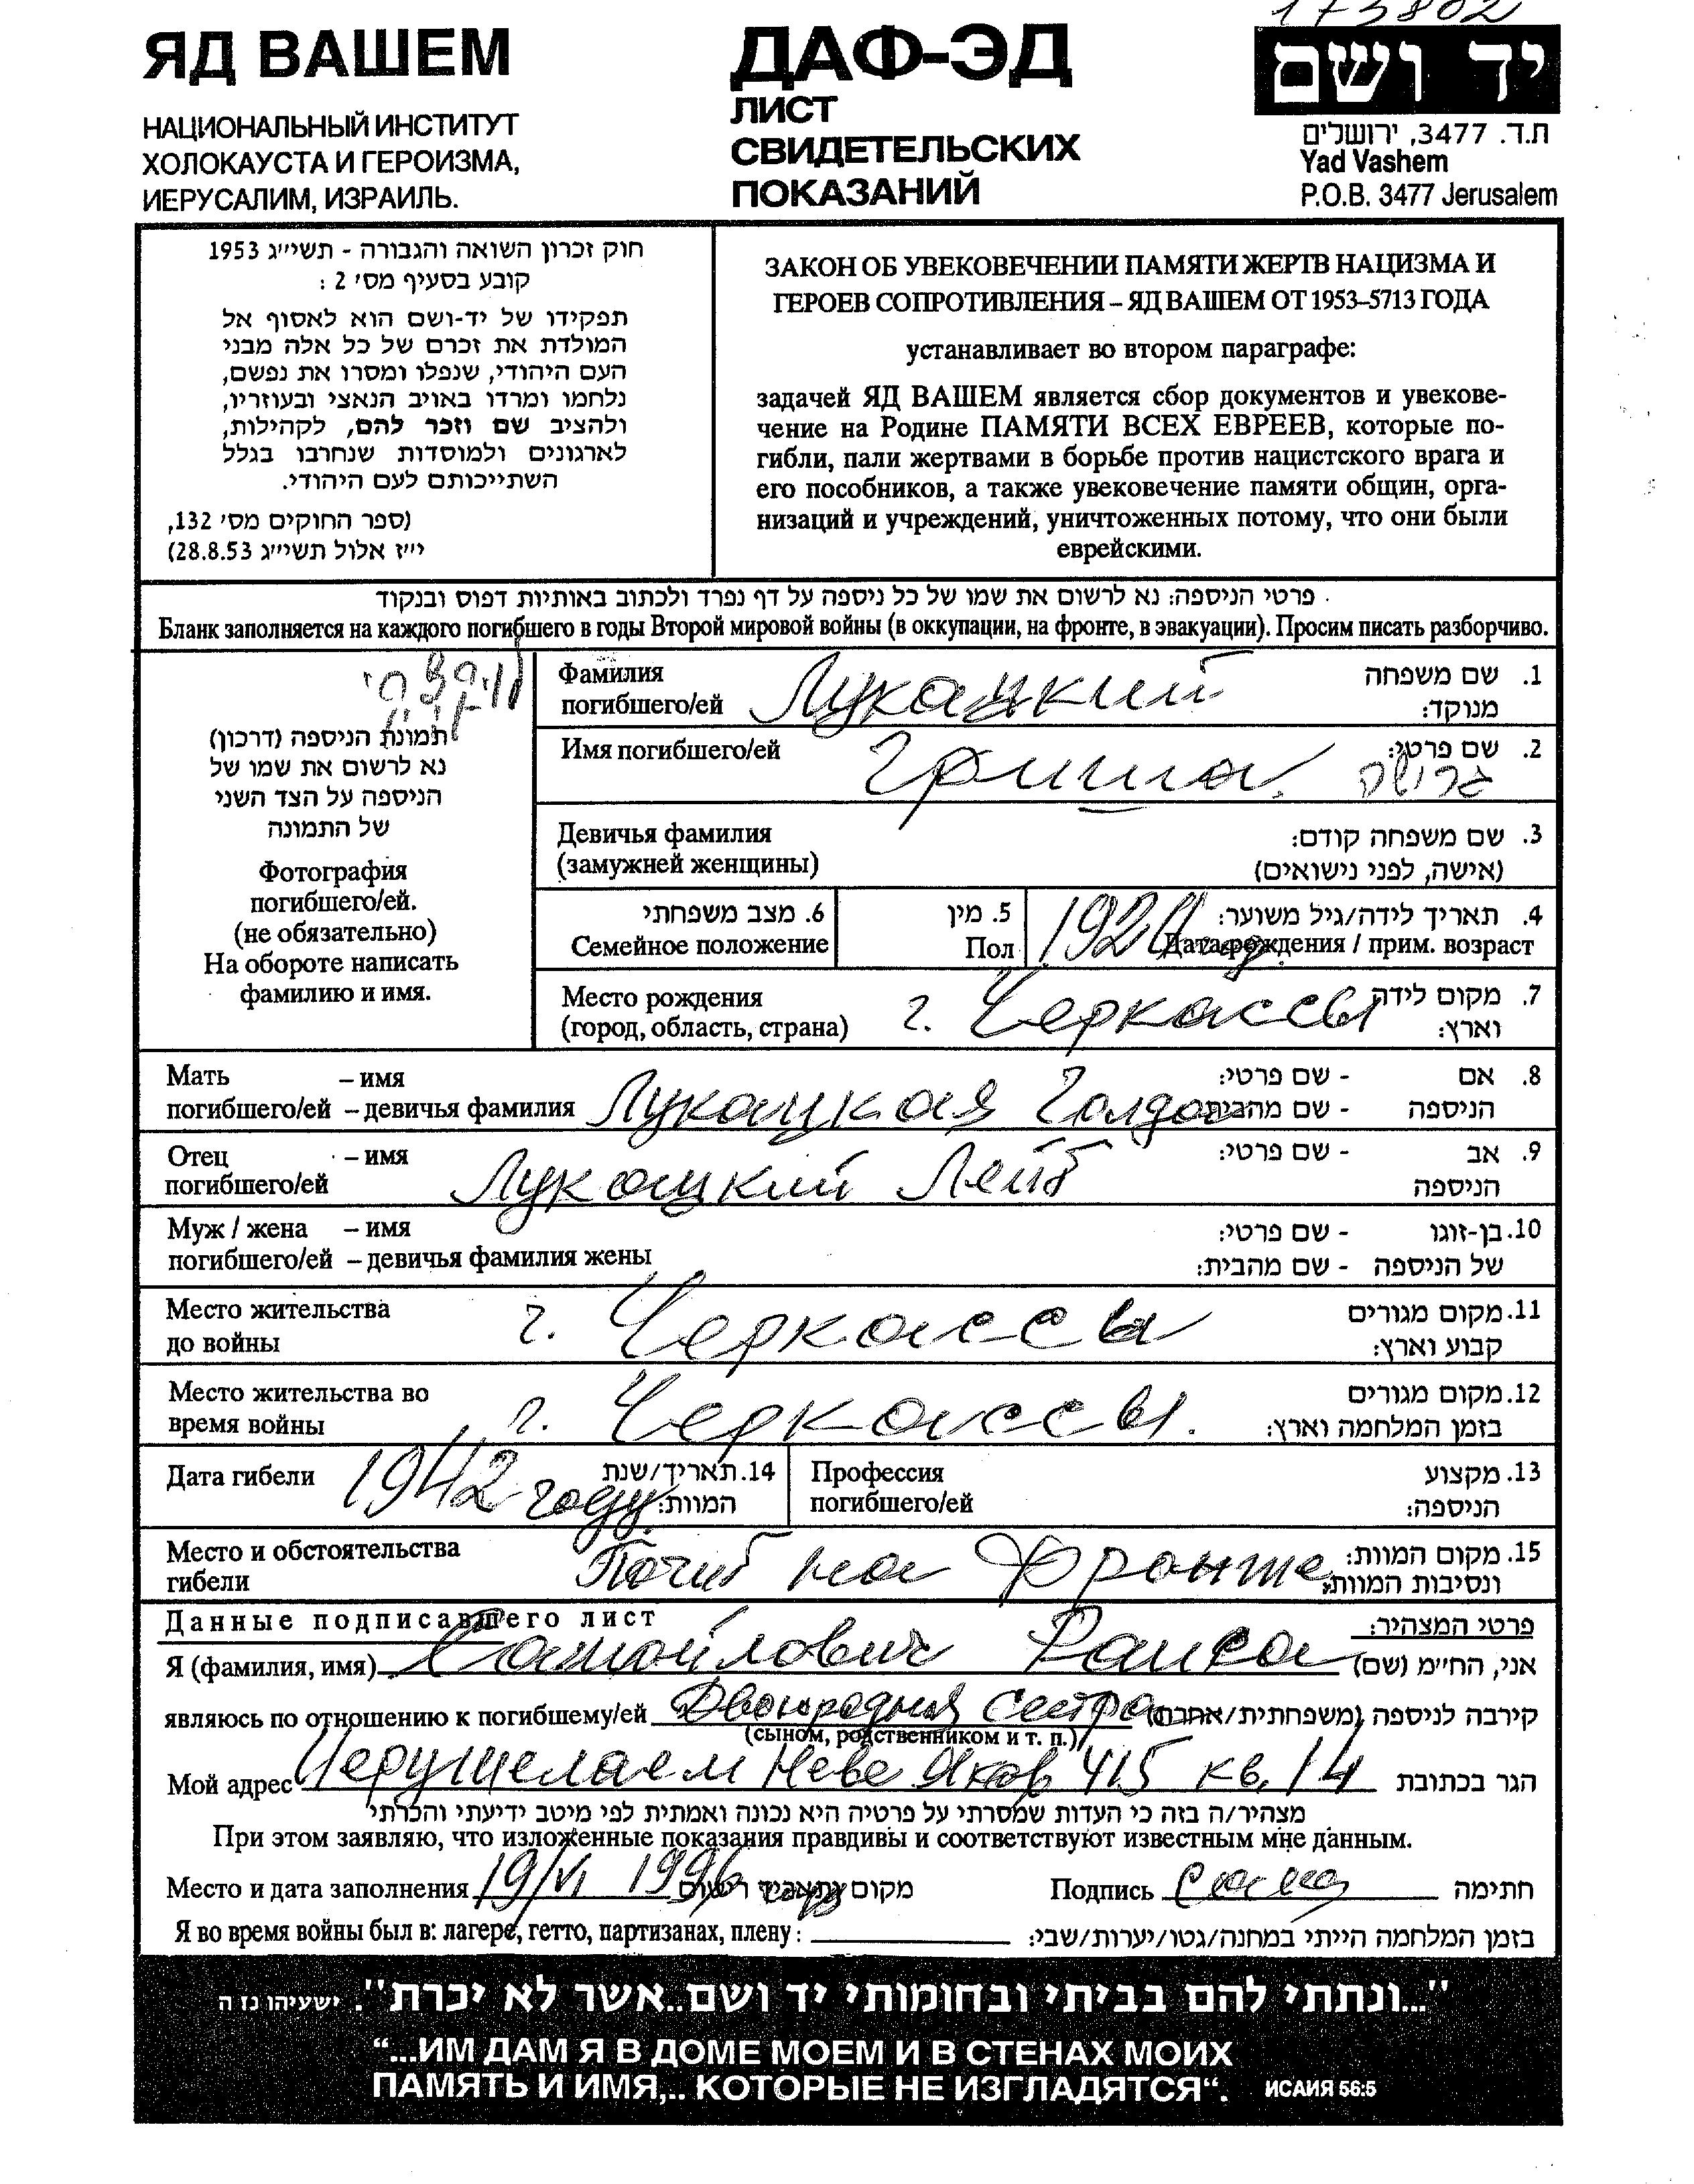 173802
ЯД ВАШЕМ
НАЦИОНАЛЬНЫЙ ИНСТИТУТ
ХОЛОКАУСТА И ГЕРОИЗМА,
ИЕРУСАЛИМ, ИЗРАИЛЬ.
ДАФ-ЭД
ЛИСТ
СВИДЕТЕЛЬСКИХ
ПОКАЗАНИЙ
יד ושם
ת.ד. 3477, ירושלים
Yad Vashem
P.O.B. 3477 Jerusalem
חוק זכרון השואה והגבורה - תשי״ג 1953
קובע בסעיף מס׳ 2 :
תפקידו של יד-ושם הוא לאסוף אל
המולדת את זכרם של כל אלה מבני
העם היהודי, שנפלו ומסרו את נפשם,
נלחמו ומרדו באויב הנאצי ובעוזריו,
ולהציב שם וזכר להם, לקהילות,
לארגונים ולמוסדות שנחרבו בגלל
השתייכותם לעם היהודי.
(ספר החוקים מס׳ 132,
י״ז אלול תשי״ג 28.8.53)
ЗАКОН ОБ УВЕКОВЕЧЕНИИ ПАМЯТИ ЖЕРТВ НАЦИЗМА И
ГЕРОЕВ СОПРОТИВЛЕНИЯ – ЯД ВАШЕМ ОТ 1953–5713 ГОДА
устанавливает во втором параграфе:
задачей ЯД ВАШЕМ является сбор документов и увекове-
чение на Родине ПАМЯТИ ВСЕХ ЕВРЕЕВ, которые по-
гибли, пали жертвами в борьбе против нацистского врага и
его пособников, а также увековечение памяти общин, орга-
низаций и учреждений, уничтоженных потому, что они были
еврейскими.
פרטי הניספה: נא לרשום את שמו של כל ניספה על דף נפרד ולכתוב באותיות דפוס ובנקוד
Бланк заполняется на каждого погибшего в годы Второй мировой войны (в оккупации, на фронте, в эвакуации). Просим писать разборчиво.
תמונת הניספה (דרכון)
נא לרשום את שמו של
הניספה על הצד השני
של התמונה
Фотография
погибшего/ей.
(не обязательно)
На обороте написать
фамилию и имя.
Фамилия Лукацкий 1. שם משפחה
погибшего/ей מנוקד:
Имя погибшего/ей Гриша 2. שם פרטי:
גרישה
Девичья фамилия 3. שם משפחה קודם:
(замужней женщины) (אישה, לפני נישואים)
6. מצב משפחתי 5. מין 4. תאריך לידה/גיל משוער:
Семейное положение Пол 192 Дата рождения / прим. возраст
Место рождения г. Черкассы 7. מקום לידה
(город, область, страна) וארץ:
Мать – имя 8. אם - שם פרטי:
погибшего/ей – девичья фамилия Лукацкая Голда הניספה - שם מהבית:
Отец – имя 9. אב - שם פרטי:
погибшего/ей Лукацкий Лейб הניספה
Муж / жена – имя 10. בן-זוגו - שם פרטי:
погибшего/ей – девичья фамилия жены של הניספה - שם מהבית:
Место жительства г. Черкассы 11. מקום מגורים
до войны קבוע וארץ:
Место жительства во г. Черкассы. 12. מקום מגורים
время войны בזמן המלחמה וארץ:
Дата гибели 1942 году. 14. תאריך/שנת המוות:
Профессия 13. מקצוע
погибшего/ей הניספה:
Место и обстоятельства Погиб на Фронте 15. מקום המוות:
гибели ונסיבות המוות:
Данные подписавшего лист פרטי המצהיר:
Я (фамилия, имя) Самойлович Раиса אני, החי״מ (שם)
являюсь по отношению к погибшему/ей Двоюродная сестра קירבה לניספה (משפחתית/אחרת)
(сыном, родственником и т. п.)
Мой адрес Иерушелаем Неве Яков 415 кв. 14 הגר בכתובת
מצהיר/ה בזה כי העדות שמסרתי על פרטיה היא נכונה ואמתית לפי מיטב ידיעתי והכרתי
При этом заявляю, что изложенные показания правдивы и соответствуют известным мне данным.
Место и дата заполнения 19/VI 1996 מקום ותאריך רישום Подпись חתימה
Я во время войны был в: лагере, гетто, партизанах, плену: בזמן המלחמה הייתי במחנה/גטו/יערות/שבי:
"...ונתתי להם בביתי ובחומותי יד ושם..אשר לא יכרת". ישעיהו נו ה
“...ИМ ДАМ Я В ДОМЕ МОЕМ И В СТЕНАХ МОИХ
ПАМЯТЬ И ИМЯ,.. КОТОРЫЕ НЕ ИЗГЛАДЯТСЯ“. ИСАИЯ 56:5